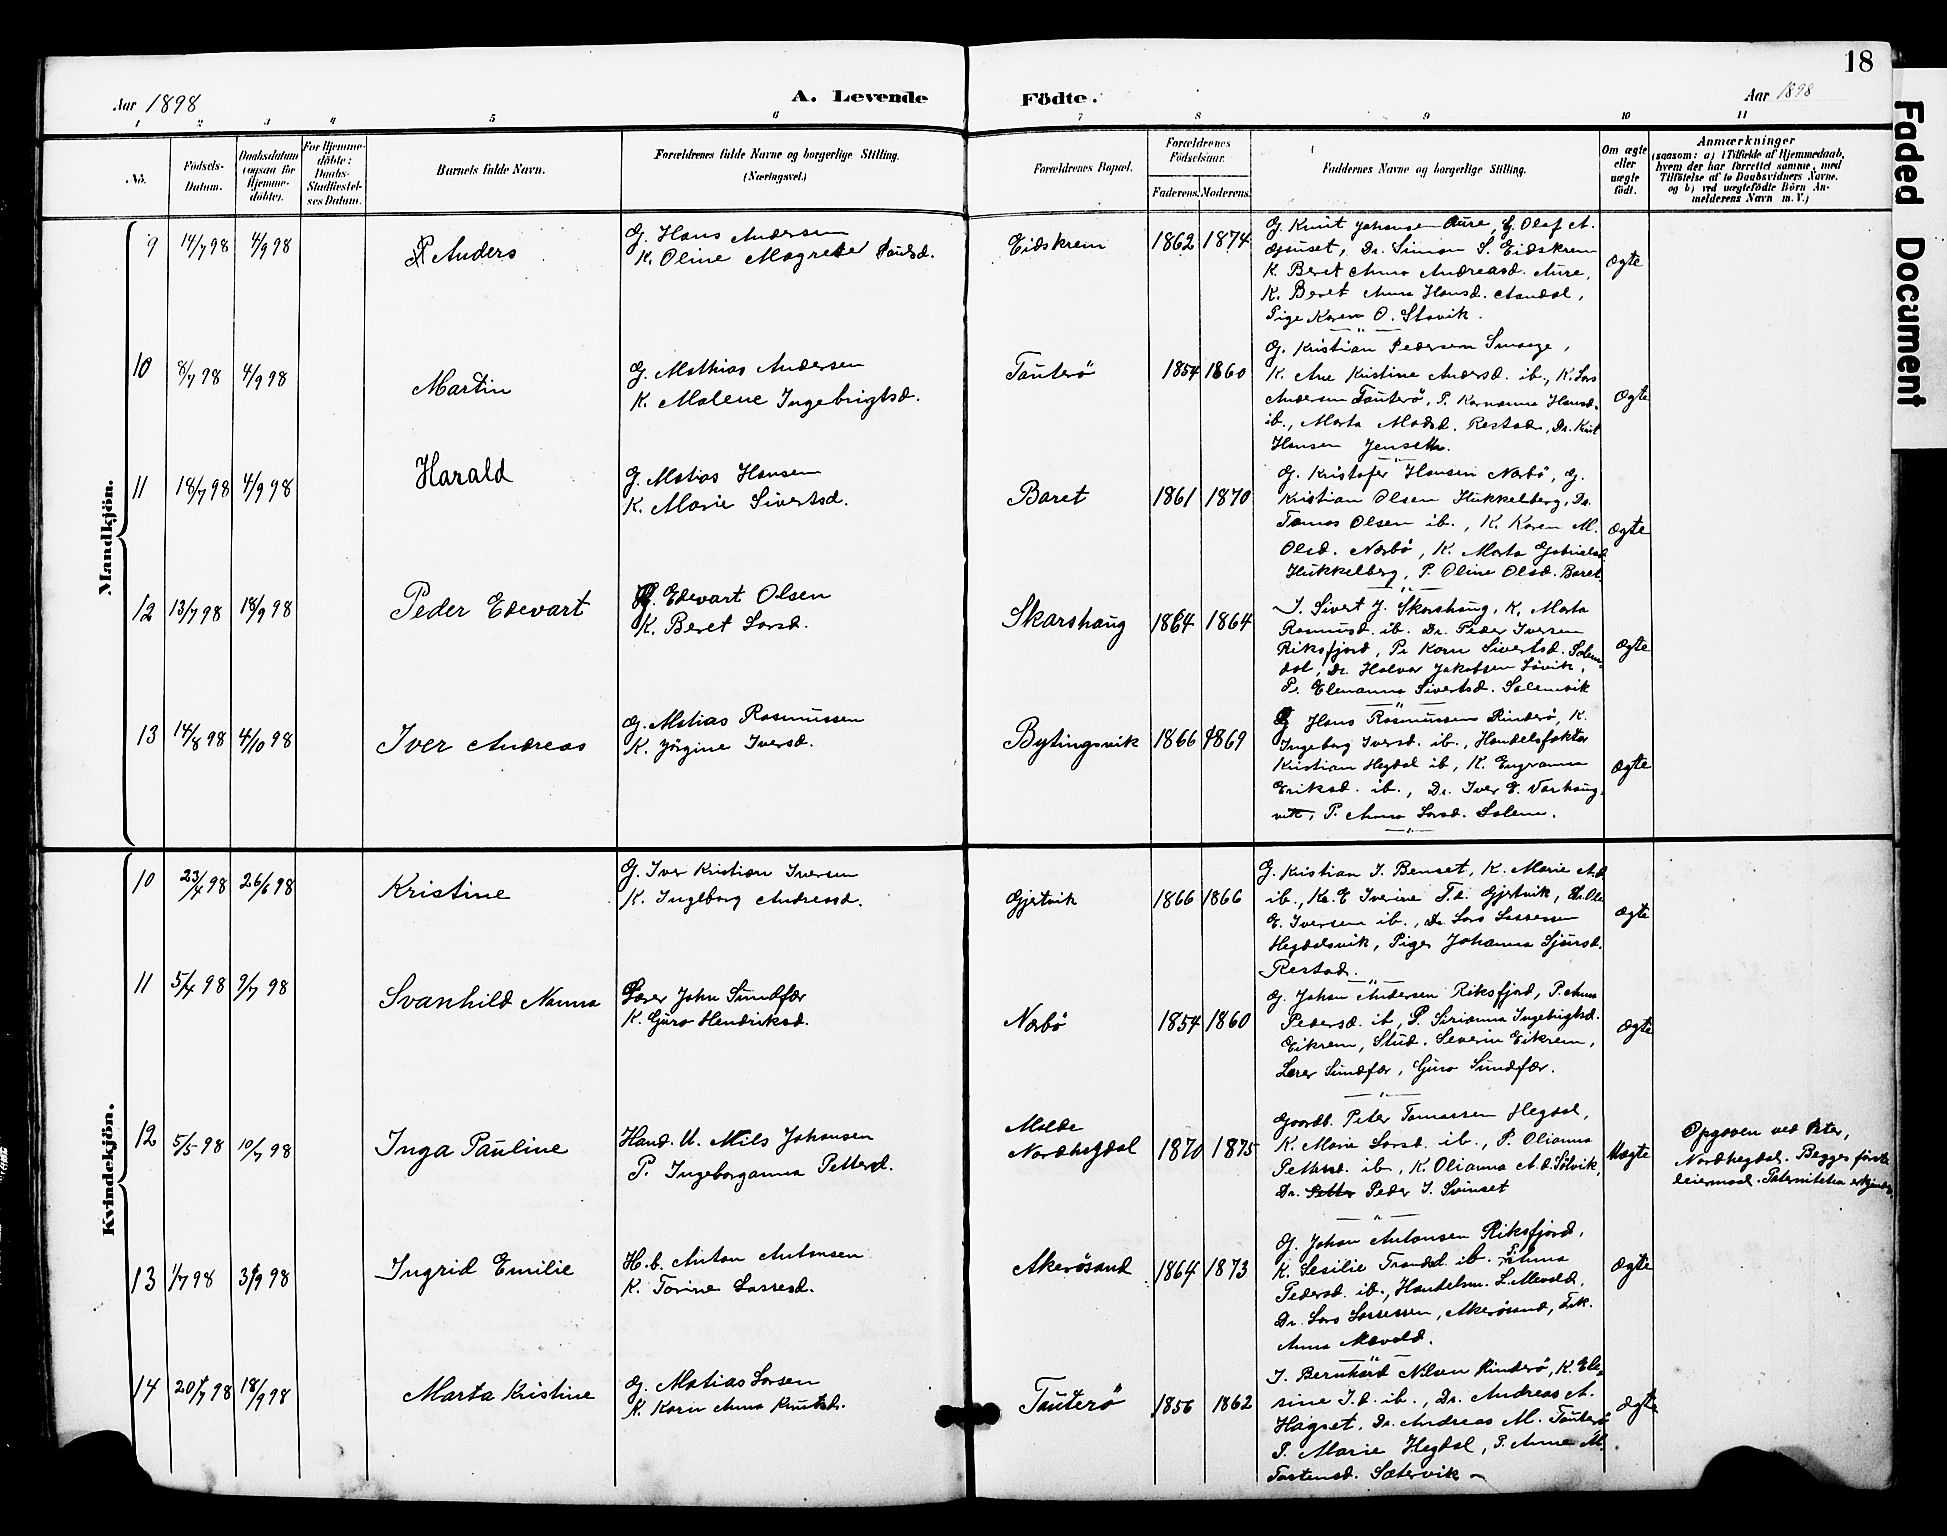 18
Aar 1898
A. Levende Födte.
Aar 1898
1 2 3 4 5 6 7 8 9 10 11
No.
Födsels-Datum.
Daabsdatum (ogsaa for Hjemme-döbte).
For Hjemme-döbte: Daabs-Stadfæstel-ses Datum.
Barnets fulde Navn.
Forældrenes fulde Navne og borgerlige Stilling. (Næringsvei.)
Forældrenes Bopæl.
Forældrenes Födselsaar.
Faderens. Moderens.
Faddernes Navne og borgerlige Stilling.
Om ægte eller uægte födt.
Anmærkninger
(saasom: a) i Tilfælde af Hjemmedaab,
hvem der har forrettet samme, med
Tilföielse af to Daabsvidners Navne.
og b) ved uægtefödte Börn An-
melderens Navn m. V.)
Faded Document
Mandkjön.
9 14/7 98 4/9 98 Anders
G. Hans Andersen
K. Oline Magrete Paulsd.
Eidskrem 1862 1874
G. Knut Johansen Aure, G. Olaf A.
Gjuset, Dr. Simon S. Eidskrem
K. Beret Anna Andreasd. Aure,
K. Beret Anna Hansd. Aandal,
Pige Karen O. Stavik.
Ægte
10 8/7 98 4/9 98 Martin
G. Mathias Andersen
K. Malene Ingebrigtsd.
Tauterö 1854 1860
G. Kristian Pedersen Smage,
K. Ane Kristine Andersd. ib., K. Lars
Andersen Tauterö, P. Karnanna Hansd.
ib., Marta Madsd. Restad, Dr. Knut
Hansen Jenset.
Ægte
11 18/7 98 4/9 98 Harald
G. Matias Hansen
K. Marie Sivertsd.
Baret 1861 1870
G. Kristofer Hansen Nærbö, G.
Kristian Olsen Hukkelberg, Dr.
Tomas Olsen ib., K. Karen M.
Olsd. Nærbö, K. Marta Gabrielsd.
Hukkelberg, P. Oline Olsd. Baret
Ægte
12 13/7 98 18/9 98 Peder Edevart
G. Edevart Olsen
K. Beret Larsd.
Skarshaug 1864 1864
I. Sivert J. Skarshaug, K. Marta
Rasmusd. ib. Dr. Peder Iversen
Riksfjord, Pi. Karn Sivertsd. Solem-
dal, Dr. Halvor Jakobsen Lövik,
Pi. Elenanna Sivertsd. Solemvik
Ægte
13 14/8 98 4/10 98 Iver Andreas
G. Matias Rasmussen
K. Jörgine Iversd.
Bytingsvik 1866 1869
G Hans Rasmussen Rinderö, K.
Ingeborg Iversd. ib., Handelsfaktor
Kristian Hegdal ib, K. Engranna
Eriksd. ib., Dr. Iver E. Varhaug-
vik, P. Anna Larsd. Solem.
Ægte
Kvindekjön.
10 23/4 98 26/6 98 Kristine
G. Iver Kristian Iversen
K. Ingeborg Andreasd.
Gjertvik 1866 1866
G. Kristian I. Benset, K. Marie A.d.
ib., K. E Iverine T.d. Gjertvik, Dr. Ole
E. Iversen ib., Dr. Lars Lassesen
Hegdalsvik, Piger Johanna Sjursd.
Restad.
Ægte
11 5/4 98 9/7 98 Svanhild Nanna
Lærer John Sundfær
K. Guro Hendriksd.
Nærbö 1854 1860
G. Johan Andersen Riksfjord, P. Anna
Pedersd. ib, P. Sirianna Ingebrigtsd.
Eikrem, Stud. Severin Eikrem,
Lærer Sundfær, Guro Sundfær.
Ægte
12 5/5 98 10/7 98 Inga Pauline
Hand. U. Nils Johansen
P. Ingeborganna Pettersd.
Molde
Nordhegdal 1870 1875
Gaardb. Peter Tomassen Hegdal,
K. Marie Larsd. ib., P. Olianna
Pettersd. ib, K. Olianna A.d. Sölvik,
Dr. Petter Peder I. Svinset
Uægte
Opgaven ved Peter,
Nordhegdal. Begges förste
leiermaal. Paterniteten erkjendes.
13 1/7 98 3/9 98 Ingrid Emilie
H.b. Anton Antonsen
K. Torine Lassesd.
Akerösand 1864 1873
G. Johan Antonsen Riksfjord,
K. Sesilie Trondsd. ib. P. Anna
Pedersd. ib., Handelsm. L. Mevold,
Dr. Lars Lassesen, Akerösand, Frk.
Anna Mevold.
Ægte
14 20/7 98 18/9 98 Marta Kristine
G. Matias Larsen
K. Karn Anna Knutsd.
Tauterö 1856 1862
I. Bernhard Nilsen Rinderö, K. Ele-
sine I.d. ib., Dr. Andreas A.
Hagset, Dr. Andreas M. Tauterö
P. Marie Hegdal, P. Anne M.
Torstensd. Sætervik
Ægte